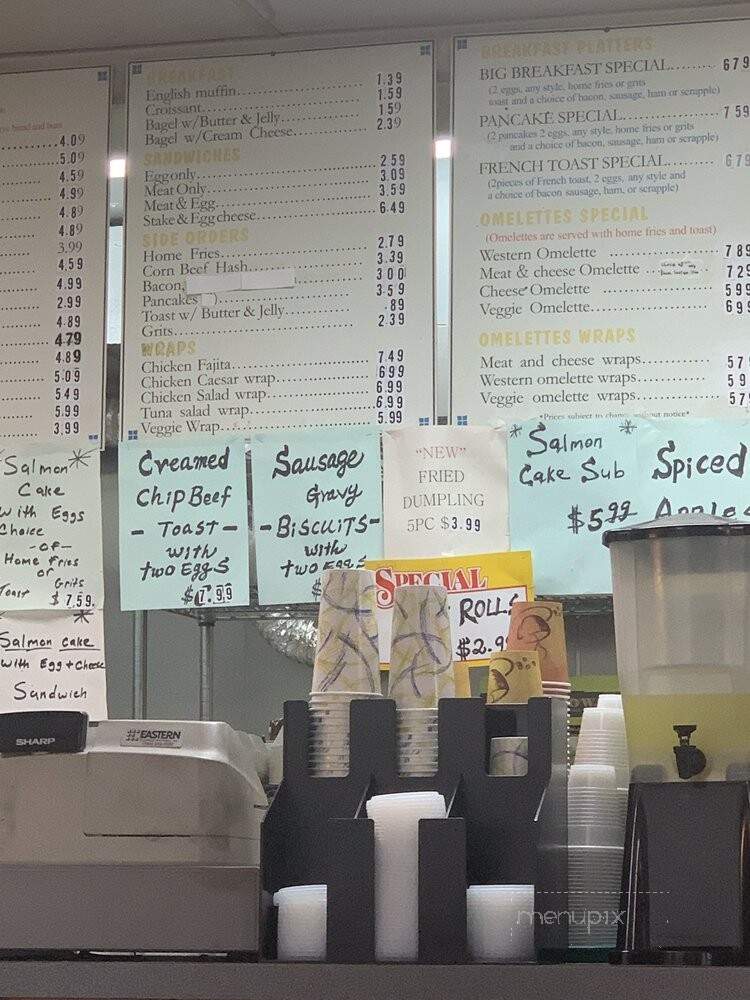 4.09
5.09
4.59
4.99
4.89
4.89
3.99
4.59
4.99
2.99
4.89
4.79
4.89
5.09
5.49
5.99
3.99
BREAKFAST
English muffin 1.39
Croissant 1.59
Bagel w/Butter & Jelly 1 59
Bagel w/Cream Cheese 2.39
SANDWICHES
Egg only 2.59
Meat Only 3.09
Meat & Egg 3.59
Stake & Egg cheese 6.49
SIDE ORDERS
Home Fries 2.79
Corn Beef Hash 3.39
Bacon, 3 00
Pancakes 3 59
Toast w/ Butter & Jelly .89
Grits 2.39
WRAPS
Chicken Fajita 7.49
Chicken Caesar wrap 6 99
Chicken Salad wrap 6.99
Tuna salad wrap 6.99
Veggie Wrap 5.99
BREAKFAST PLATTERS
BIG BREAKFAST SPECIAL 6 79
(2 eggs, any style, home fries or grits
toast and a choice of bacon, sausage, ham or scrapple)
PANCAKE SPECIAL 7 59
(2 pancakes 2 eggs, any style, home fries or grits
and a choice of bacon, sausage, ham or scrapple)
FRENCH TOAST SPECIAL 6 79
(2pieces of French toast, 2 eggs, any style and
a choice of bacon sausage, ham, or scrapple)
OMELETTES SPECIAL
(Omelettes are served with home fries and toast)
Western Omelette 7 89
Meat & cheese Omelette 7 29
Cheese Omelette 5 99
Veggie Omelette 6 99
OMELETTES WRAPS
Meat and cheese wraps 5 7
Western omelette wraps 5 9
Veggie omelette wraps 5 7
*Prices subject to change without notice*
Salmon
Cake
with Eggs
Choice
-OF-
Home Fries
or
Toast Grits
$ 7.59.
Creamed
Chip Beef
- TOAST -
with
two EggS
$7.99
Sausage
Gravy
- BISCUITS -
with
two EggS
$
"NEW"
FRIED
DUMPLING
5PC $3.99
Salmon
Cake Sub
$5.99
Spiced
Apples
SPECIAL
ROLLS
$2.9
Salmon cake
with Egg + Cheese
Sandwich
SHARP
EASTERN
menupix